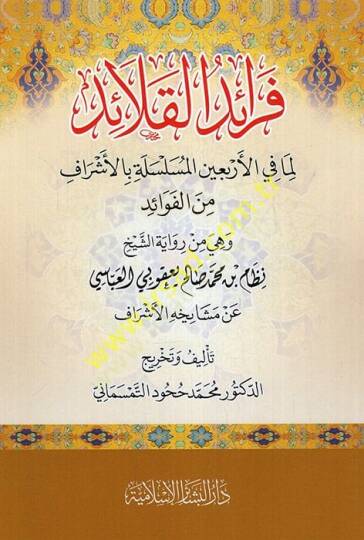 فَرَائِدُ القَلَائِد
لِمَا فِي الأَرْبَعِينَ المُسَلْسَلَةِ بِالأَشْرَافِ
مِنَ الفَوَائِدِ
وَهِيَ مِنْ رِوَايَةِ الشَّيْخِ
نِظَام بْن مُحَمَّد صَالِح يَعْقُوبِي العَبَّاسِي
عَنْ مَشَايِخِهِ الأَشْرَافِ
تَأْلِيف وَتَخْرِيج
الدُّكْتُور مُحَمَّد حُحُود التَّمْسَمَانِيّ
دَارُ البَشَائِرِ الإِسْلَامِيَّة